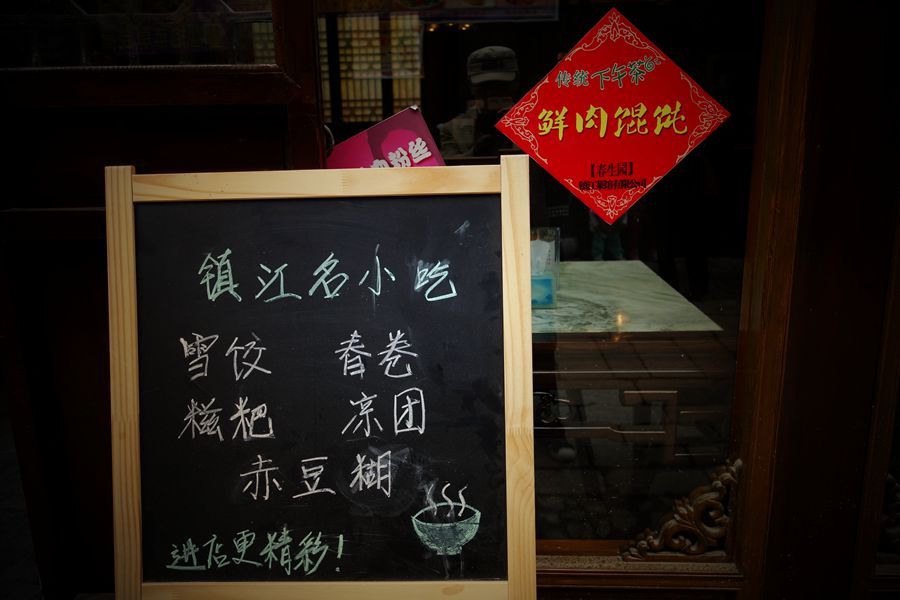 传统下午茶
鲜肉馄饨
【春生园】
粉丝
镇江名小吃
雪饺 春卷
糍粑 凉团
赤豆糊
进店更精彩!